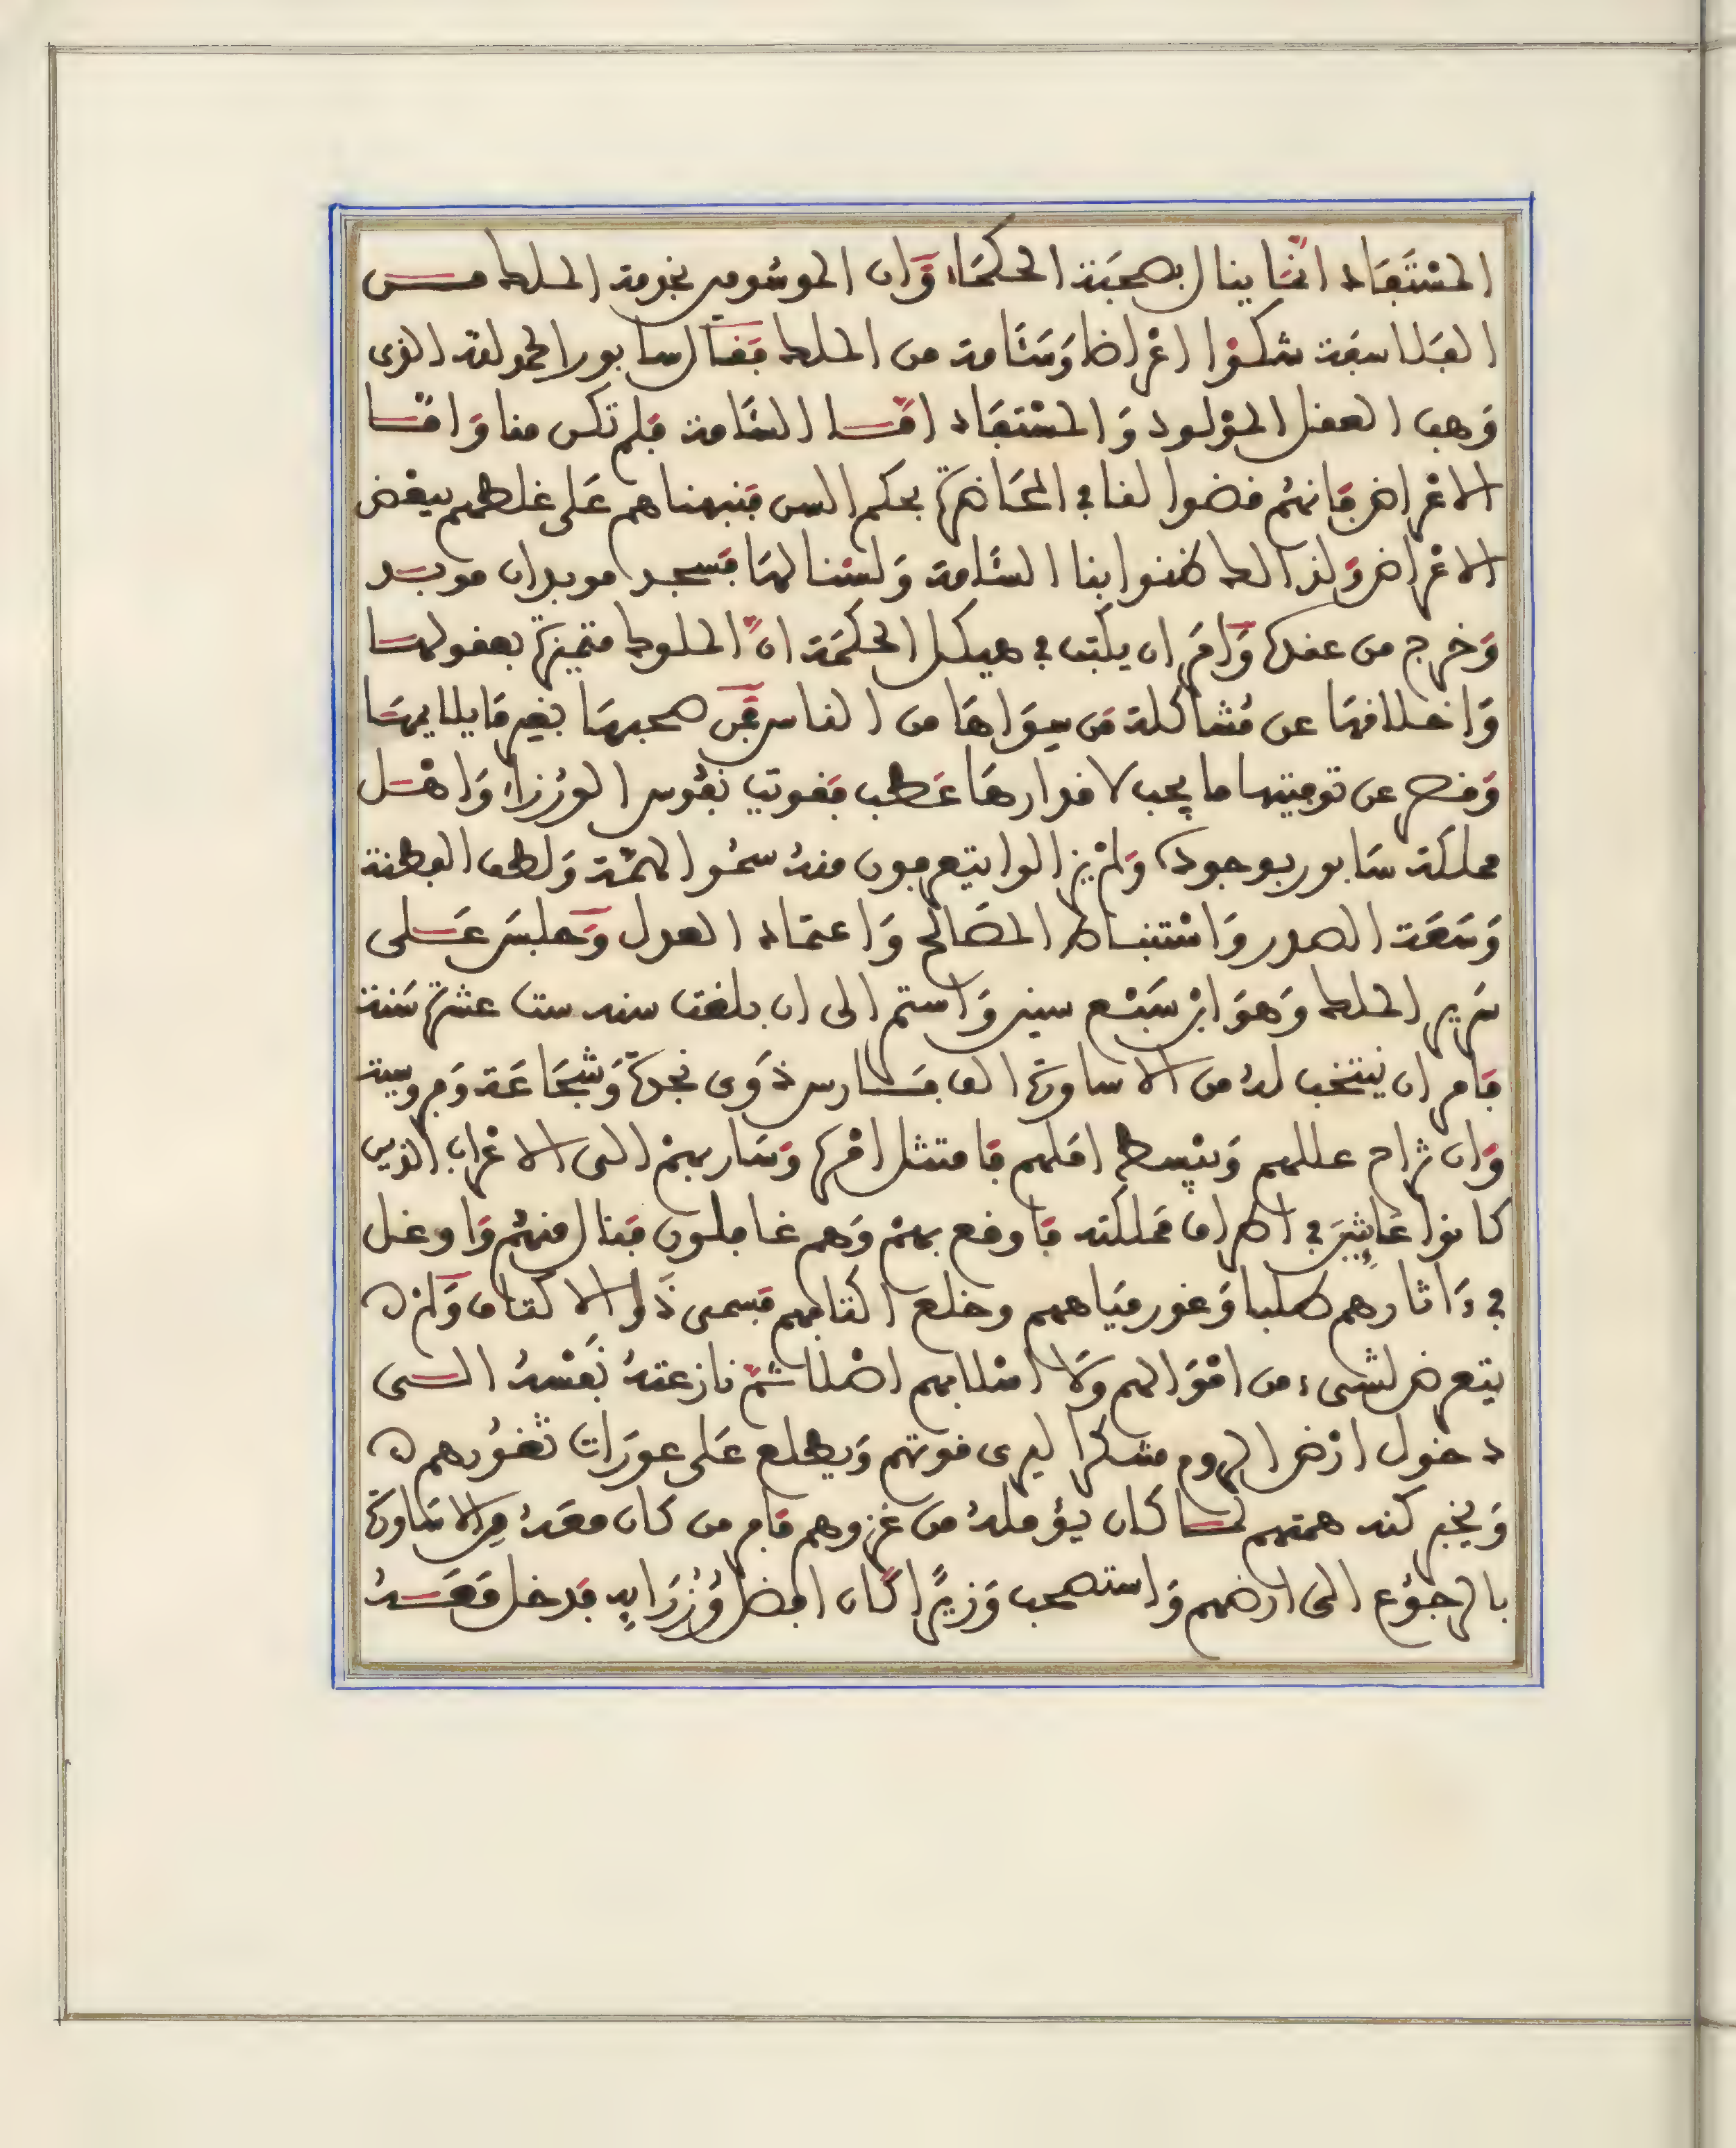 المُسْتَفَاد انّمَا ينال بصحبَة الحكمَاء وَان الموسُومين بخدمة الملك مــن
الفَلاسفَة شكوْا اعْراضا وَسَئَامة من الملك فقَال سابور الحمد لله الذى
وَهب العقل المؤلود وَالمسْتفَاد امّــا السَّئَامة فلم تكن منا وَامّــا
الاعْراض فَانهُم قضوا لنا في المحَاضرَة بحكم السن فنبهناهم عَلى غلطهم ببعْض
الاعْراض وَلذالك ظننوا بنا السَّئَامة وَلسْنا لهَا فسجد موبدان موبــد
وَخرج من عنده وَامَر ان يكتب في هيكل الحكمَة انّ الملوك متميزة بعقولهــا
وَاخلاقهَا عن مُشاكلة مَن سِوَاهَا من الناس فمَن صحبهَا بغير مَا يلايمهَا
وَقصر عن توفيتها ما يجب لاقدارهَا عَطب فقويت نفُوس الوُزراء وَاهْــل
مملكَة سَابور بوجوده وَلمْ يزالوا يتعرفون منهُ سمُو الهمّة وَلطف الفطنة
وَسَعَة الصدر وَاسْتنبــاط المصَالح وَاعتمَاد العدل وَجلسَ عَــلى
سَرير الملك وَهوَ ابْن سَبْــع سنين وَاستمر الى ان بلغت سنه ست عشرَة سَنة
فَامر ان ينتخب لهُ من الاساورة الف فــارس ذوَى نجدة وَشجَاعَة وَفروسية
وَان تزاح عللهم وَيبْسط امَلهم فَامتثل امْره وَسَار بهمْ الى الاعْراب الذين
كانوا عَاثِينَ في اطراف مَملكته فَاوقع بهمْ وَهم غافلون فنال منهُم وَاوغل
في ءَاثارهم طلبا وَغور ميَاههم وخلع اكتافهم فسمى ذَوا الاكتاف وَلم
يتعرض لشىء من امْوَالهم وَلا اسْلابهم اصْلا ثمّ نازعتهُ نَفْسهُ الــى
دخول ارْض الروم متنكرا ليرى قوتهم وَيطلع عَلى عورَات ثغُورهم
وَيخبر كنه همتهم لمــا كان يؤملهُ من غزوهم فامر من كان معَهُ مِن الاسَاورة
بالرجوُع الى ارضهم وَاستصحب وَزيرًا كَان افضل وُزرَايهِ فدخل مَعَــهُ